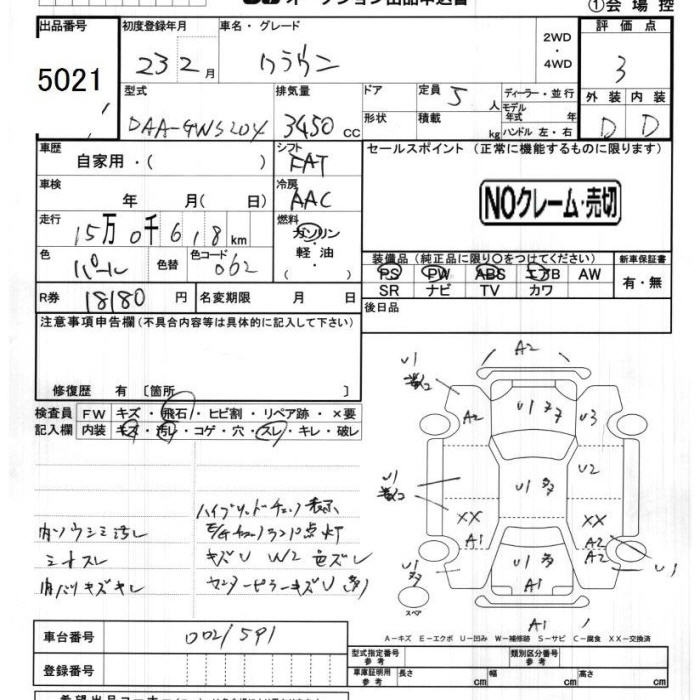 オークション出品申込書
①会場控
出品番号
5021
初度登録年月
23 2月
車名・グレード
クラウン
2WD
・
4WD
評価点
3
外装 内装
D D
型式
DAA-GWS204
排気量
3450 CC
ドア
定員 5 人
ディーラー・並行
モデル年式 年
形状
積載 kg
ハンドル 左・右
車歴
自家用・( )
シフト
FAT
セールスポイント (正常に機能するものに限ります)
NOクレーム・売切
車検
年 月( 日)
冷房
AAC
走行
15万0千618km
燃料
ガソリン
軽油
( )
色
パール
色替
色コード
062
装備品(純正品に限り○をつけてください)
新車保証書
PS PW ABS エアB AW
SR ナビ TV カワ
有・無
R券 18180円
名変期限 月 日
後日品
注意事項申告欄(不具合内容等は具体的に記入して下さい)
修復歴 有〔箇所 〕
検査員
記入欄
FW キズ・飛石・ヒビ割・リペア跡・×要
内装 キズ・汚レ・コゲ・穴・スレ・キレ・破レ
ハイブリッドチェック表示
内ソウシミ汚レ
E/Gチェックランプ点灯
シートスレ
キズU W2 色ズレ
内バリキズキレ
センターピラーキズU
A2
U1
A2
U1
U3
U1
U1
U2
XX
XX
A1
A2
A2
U1
U1
U1
A1
A1
スペア
A-キズ E-エクボ U-凹み W-補修跡 S-サビ C-腐食 XX-交換済
車台番号
0021591
登録番号
型式指定番号
参考
類別区分番号
参考
車庫証明用
参考
長さ cm
幅 cm
高さ cm
希望出品コーナー